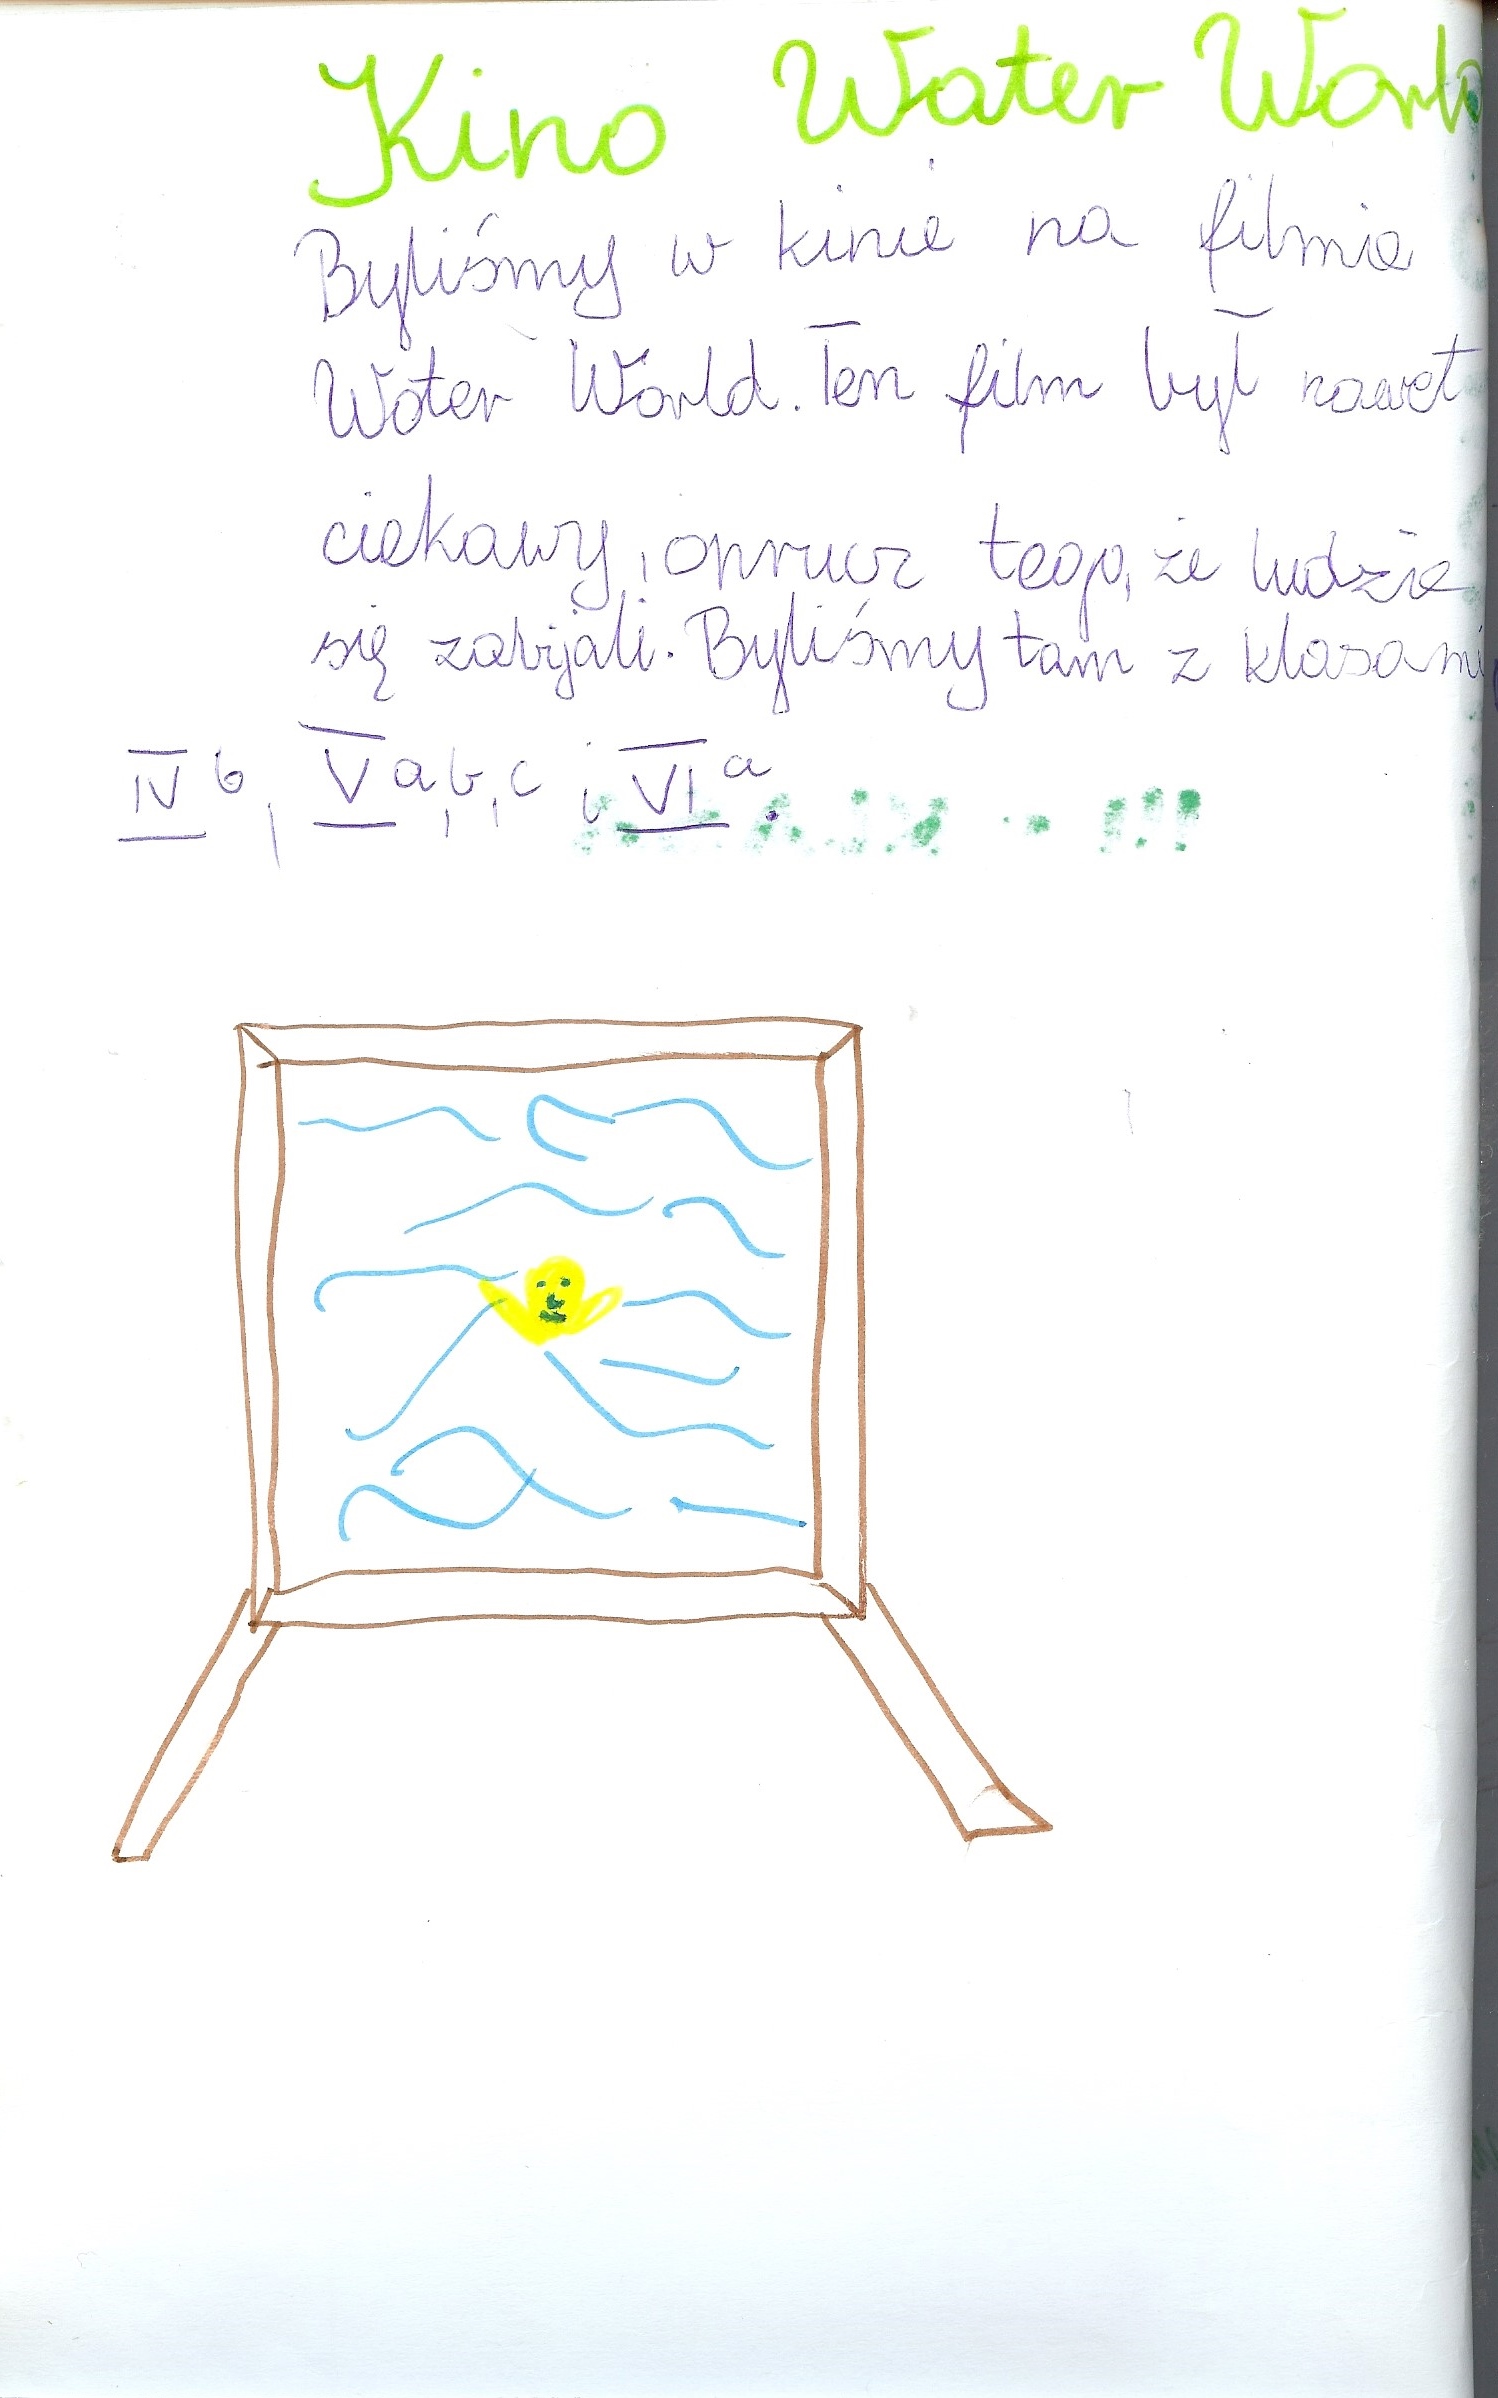 Kino Water World
Byliśmy w kinie na filmie
Woter World. Ten film był nawet
ciekawy, oprucz teop, że ludzie
się zabijali. Byliśmy tam z klasami
IV b, V a, b, c i VI a.